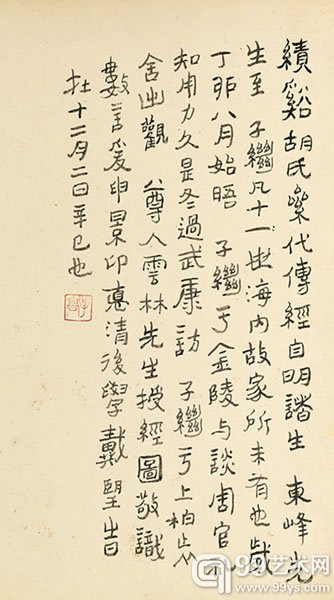 績谿胡氏絫代傳經自明諸生 東峰先
生至 子繼凡十一世海內故家所未有也歲
丁卯八月始晤 子繼于金陵与談周官礼
知用力久是冬過武康訪 子繼于上柏山
舍出觀 尊人雲林先生授經圖敬識
數言爰卬景卬悳清後學戴望旹
在十二月二日辛巳也
子高
99艺术网
www.99ys.com